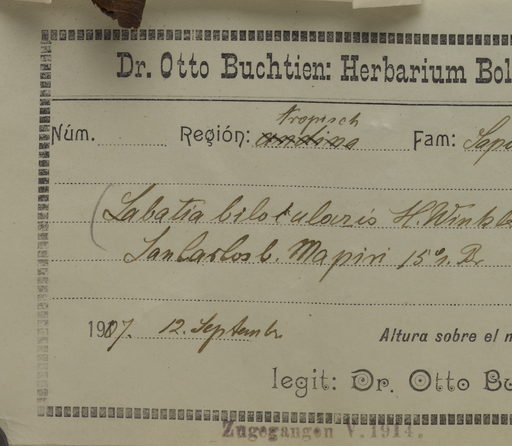 Dr. Otto Buchtien: Herbarium Bol
tropisch
Núm. Región: andina Fam: Sapo
Labatia bilocularis H. Winkle
San Carlos b. Mapiri 15° s. Br
1907. 12. Septembr
Altura sobre el m
legit: Dr. Otto Bu
Zugegangen V. 1914.